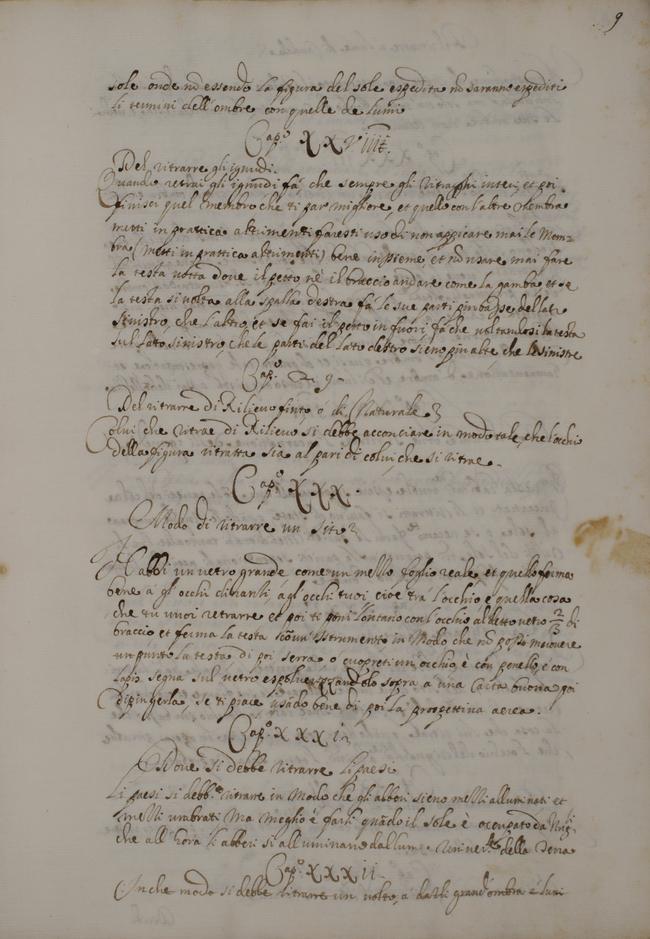 9
sole onde nō essendo la figura del sole espedita nō saranno espediti
li termini dell'ombre con quelle de lumi
Cap.º XXVIIII.
Del ritrarre gli ignudi.
Quando retrai gli ignudi fa, che sempre gli ritragghi interi, et poi
finisci quel membro che ti par migliore, et quello con l'altre membra
metti in prattica altrimenti faresti uso di non appicare mai le mem-
bra (metti in prattica altrimenti) bene insieme et nō usare mai fare
la testa volta dove il petto nè il braccio andare come la gamba, et se
la testa si volta alla spalla destra fa le sue parti più basse dellato
sinistro, che l'altro, et se fai il petto in fuori fa che voltandosi la testa
sul lato sinistro, che le parti del lato destro sieno più alte, che le sinistre
Cap.º 29.
Del ritrarre di Rilievo finto o di Naturale
Colui che ritrae di Rilievo si debbe acconciare in modo tale, che l'occhio
della figura ritratta sia al pari di colui che si ritrae.
Cap.º XXX.
Modo di ritrarre un sito
Habbi un vetro grande come un mezzo foglio reale et quello ferma
bene a gli occhi dinanti, a gli occhi tuoi cioè tra l'occhio e quella cosa
che tu vuoi retrarre et poi ti poni lontano con l'occhio al detto vetro 2/3 di
braccio et ferma la testa con un istrumento in modo che nō possi movere
un punto la testa di poi serra o cuopreti un occhio, è con penello, è con
lapis segna sul vetro sopra a una carta buona poi
dipingerla se ti piace usādo bene di poi la prospettiva aerea.
Cap.º XXXI.
Dove si debbe ritrarre li paesi
Li paesi si debbe ritrarre in modo che gli alberi sieno mezzi alluminati et
mezzi umbrati ma meglio è farli quādo il sole è occupato da nugi
che all'hora li alberi si alluminano dallume univer.le della Terra
Cap.º XXXII.
In che modo si debbe ritrarre un volto, a darli grand'ombra e lumi